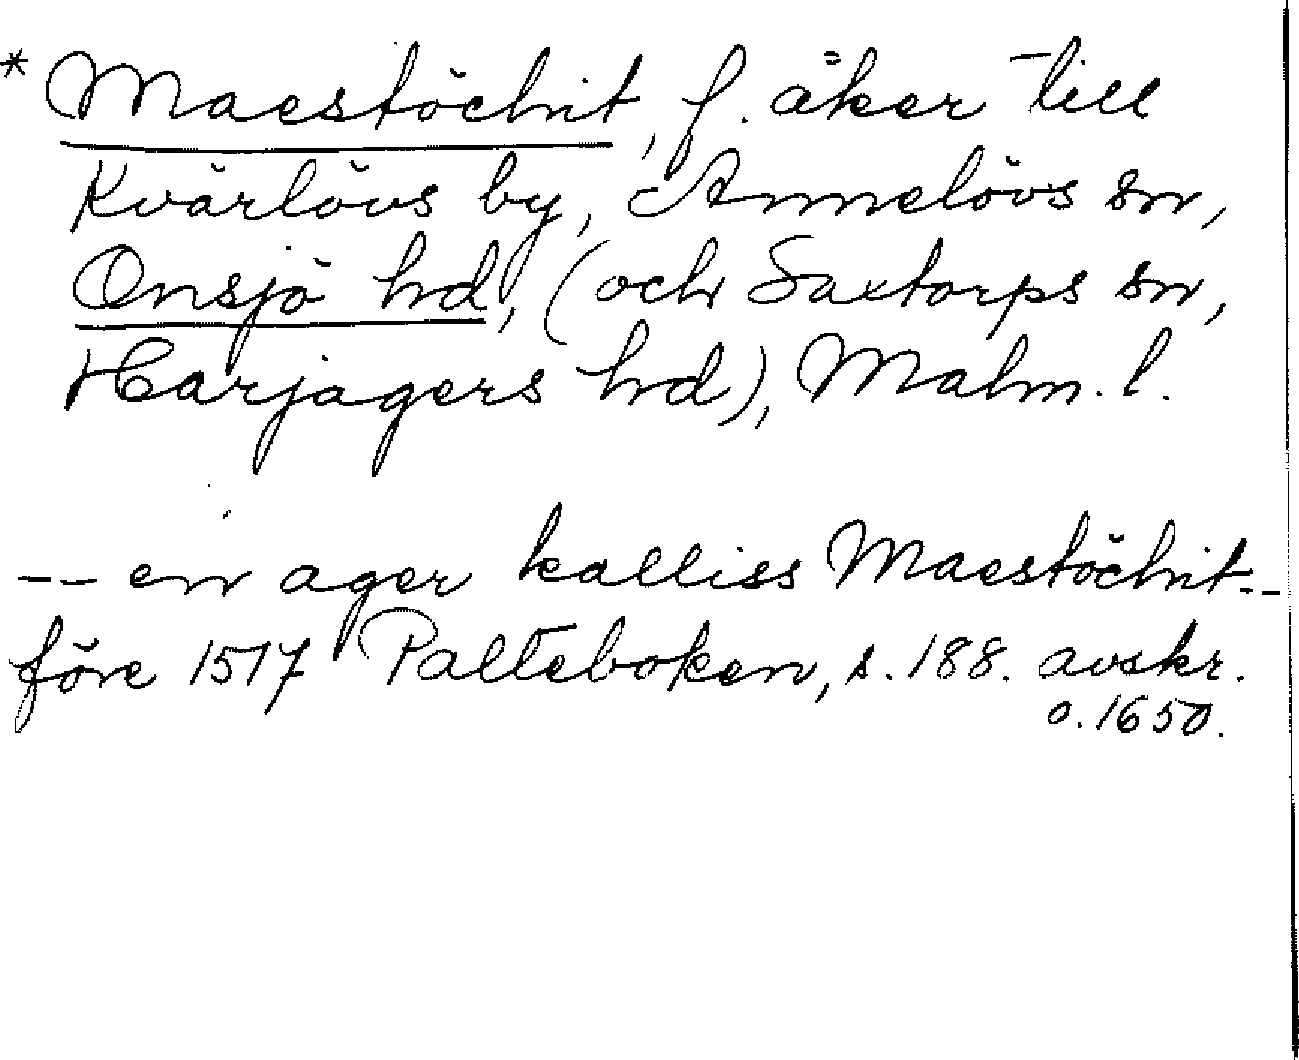 * Maestöchit, f. åker till
Kvärlövs by, Annelövs sn,
Onsjö hd, (och Saxtorps sn,
Harjagers hd), Malm. l.
-- en ager kalliss Maestöchit --
före 1517 Palteboken, s. 188. avskr.
o. 1650.